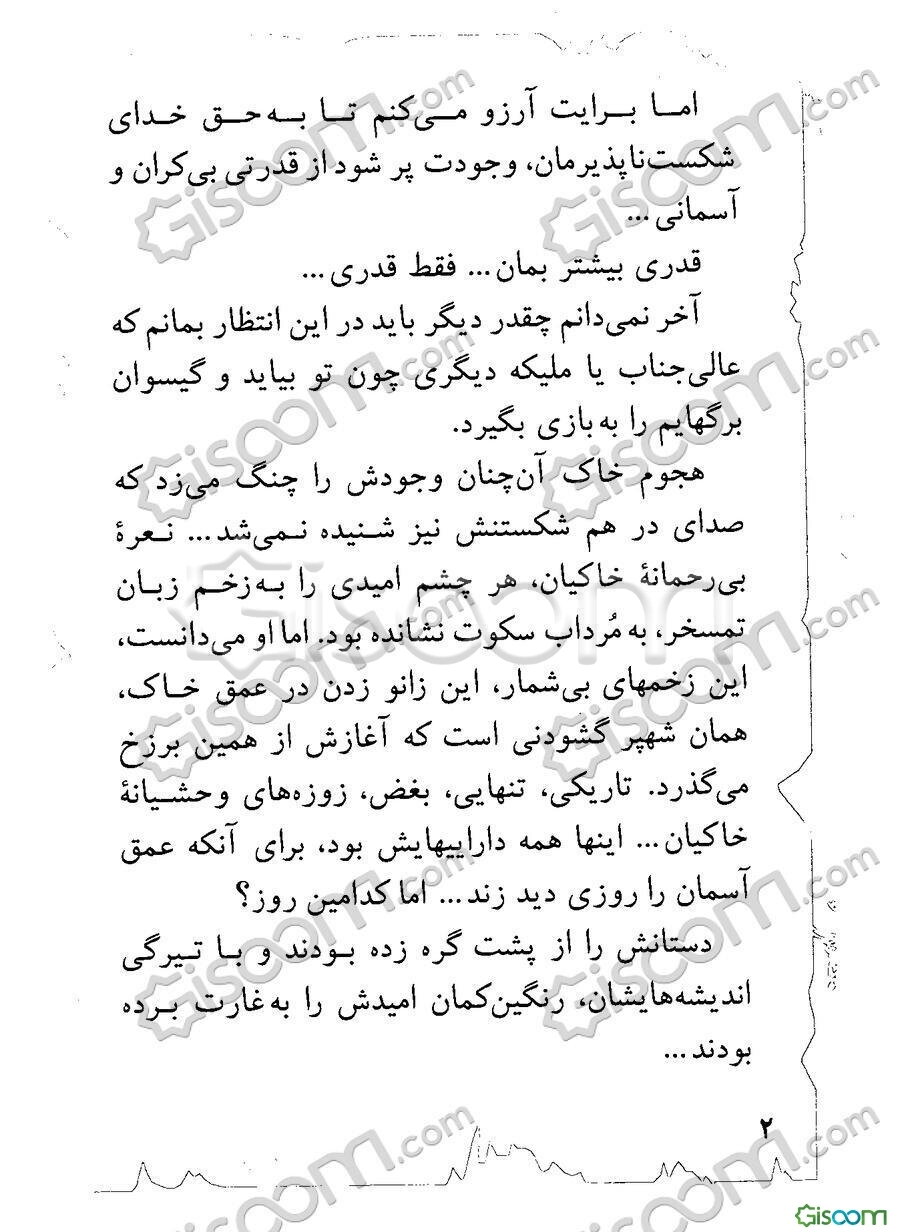 اما برایت آرزو می‌کنم تا به‌حق خدای
شکست‌ناپذیرمان، وجودت پر شود از قدرتی بی‌کران و
آسمانی...
قدری بیشتر بمان... فقط قدری...
آخر نمی‌دانم چقدر دیگر باید در این انتظار بمانم که
عالی‌جناب یا ملیکه دیگری چون تو بیاید و گیسوان
برگهایم را به‌بازی بگیرد.
هجوم خاک آن‌چنان وجودش را چنگ می‌زد که
صدای در هم شکستنش نیز شنیده نمی‌شد... نعرهٔ
بی‌رحمانهٔ خاکیان، هر چشم امیدی را به‌زخم زبان
تمسخر، به مُرداب سکوت نشانده بود. اما او می‌دانست،
این زخمهای بی‌شمار، این زانو زدن در عمق خاک،
همان شهپر گشودنی است که آغازش از همین برزخ
می‌گذرد. تاریکی، تنهایی، بغض، زوزه‌های وحشیانهٔ
خاکیان... اینها همه داراییهایش بود، برای آنکه عمق
آسمان را روزی دید زند... اما کدامین روز؟
دستانش را از پشت گره زده بودند و با تیرگی
اندیشه‌هایشان، رنگین‌کمان امیدش را به‌غارت برده
بودند...
۲
Gisoom